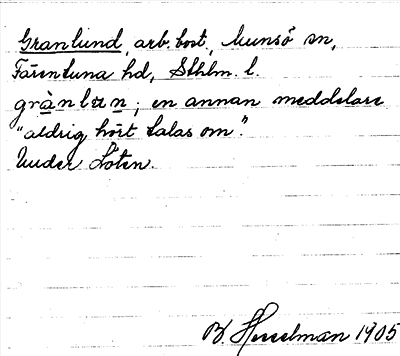 Granlund, arb.bost., Munsö sn,
Färentuna hd, Sthlm. l.
grànlun; en annan meddelare
"aldrig hört talas om".
Under Löten.
B. Hesselman 1905